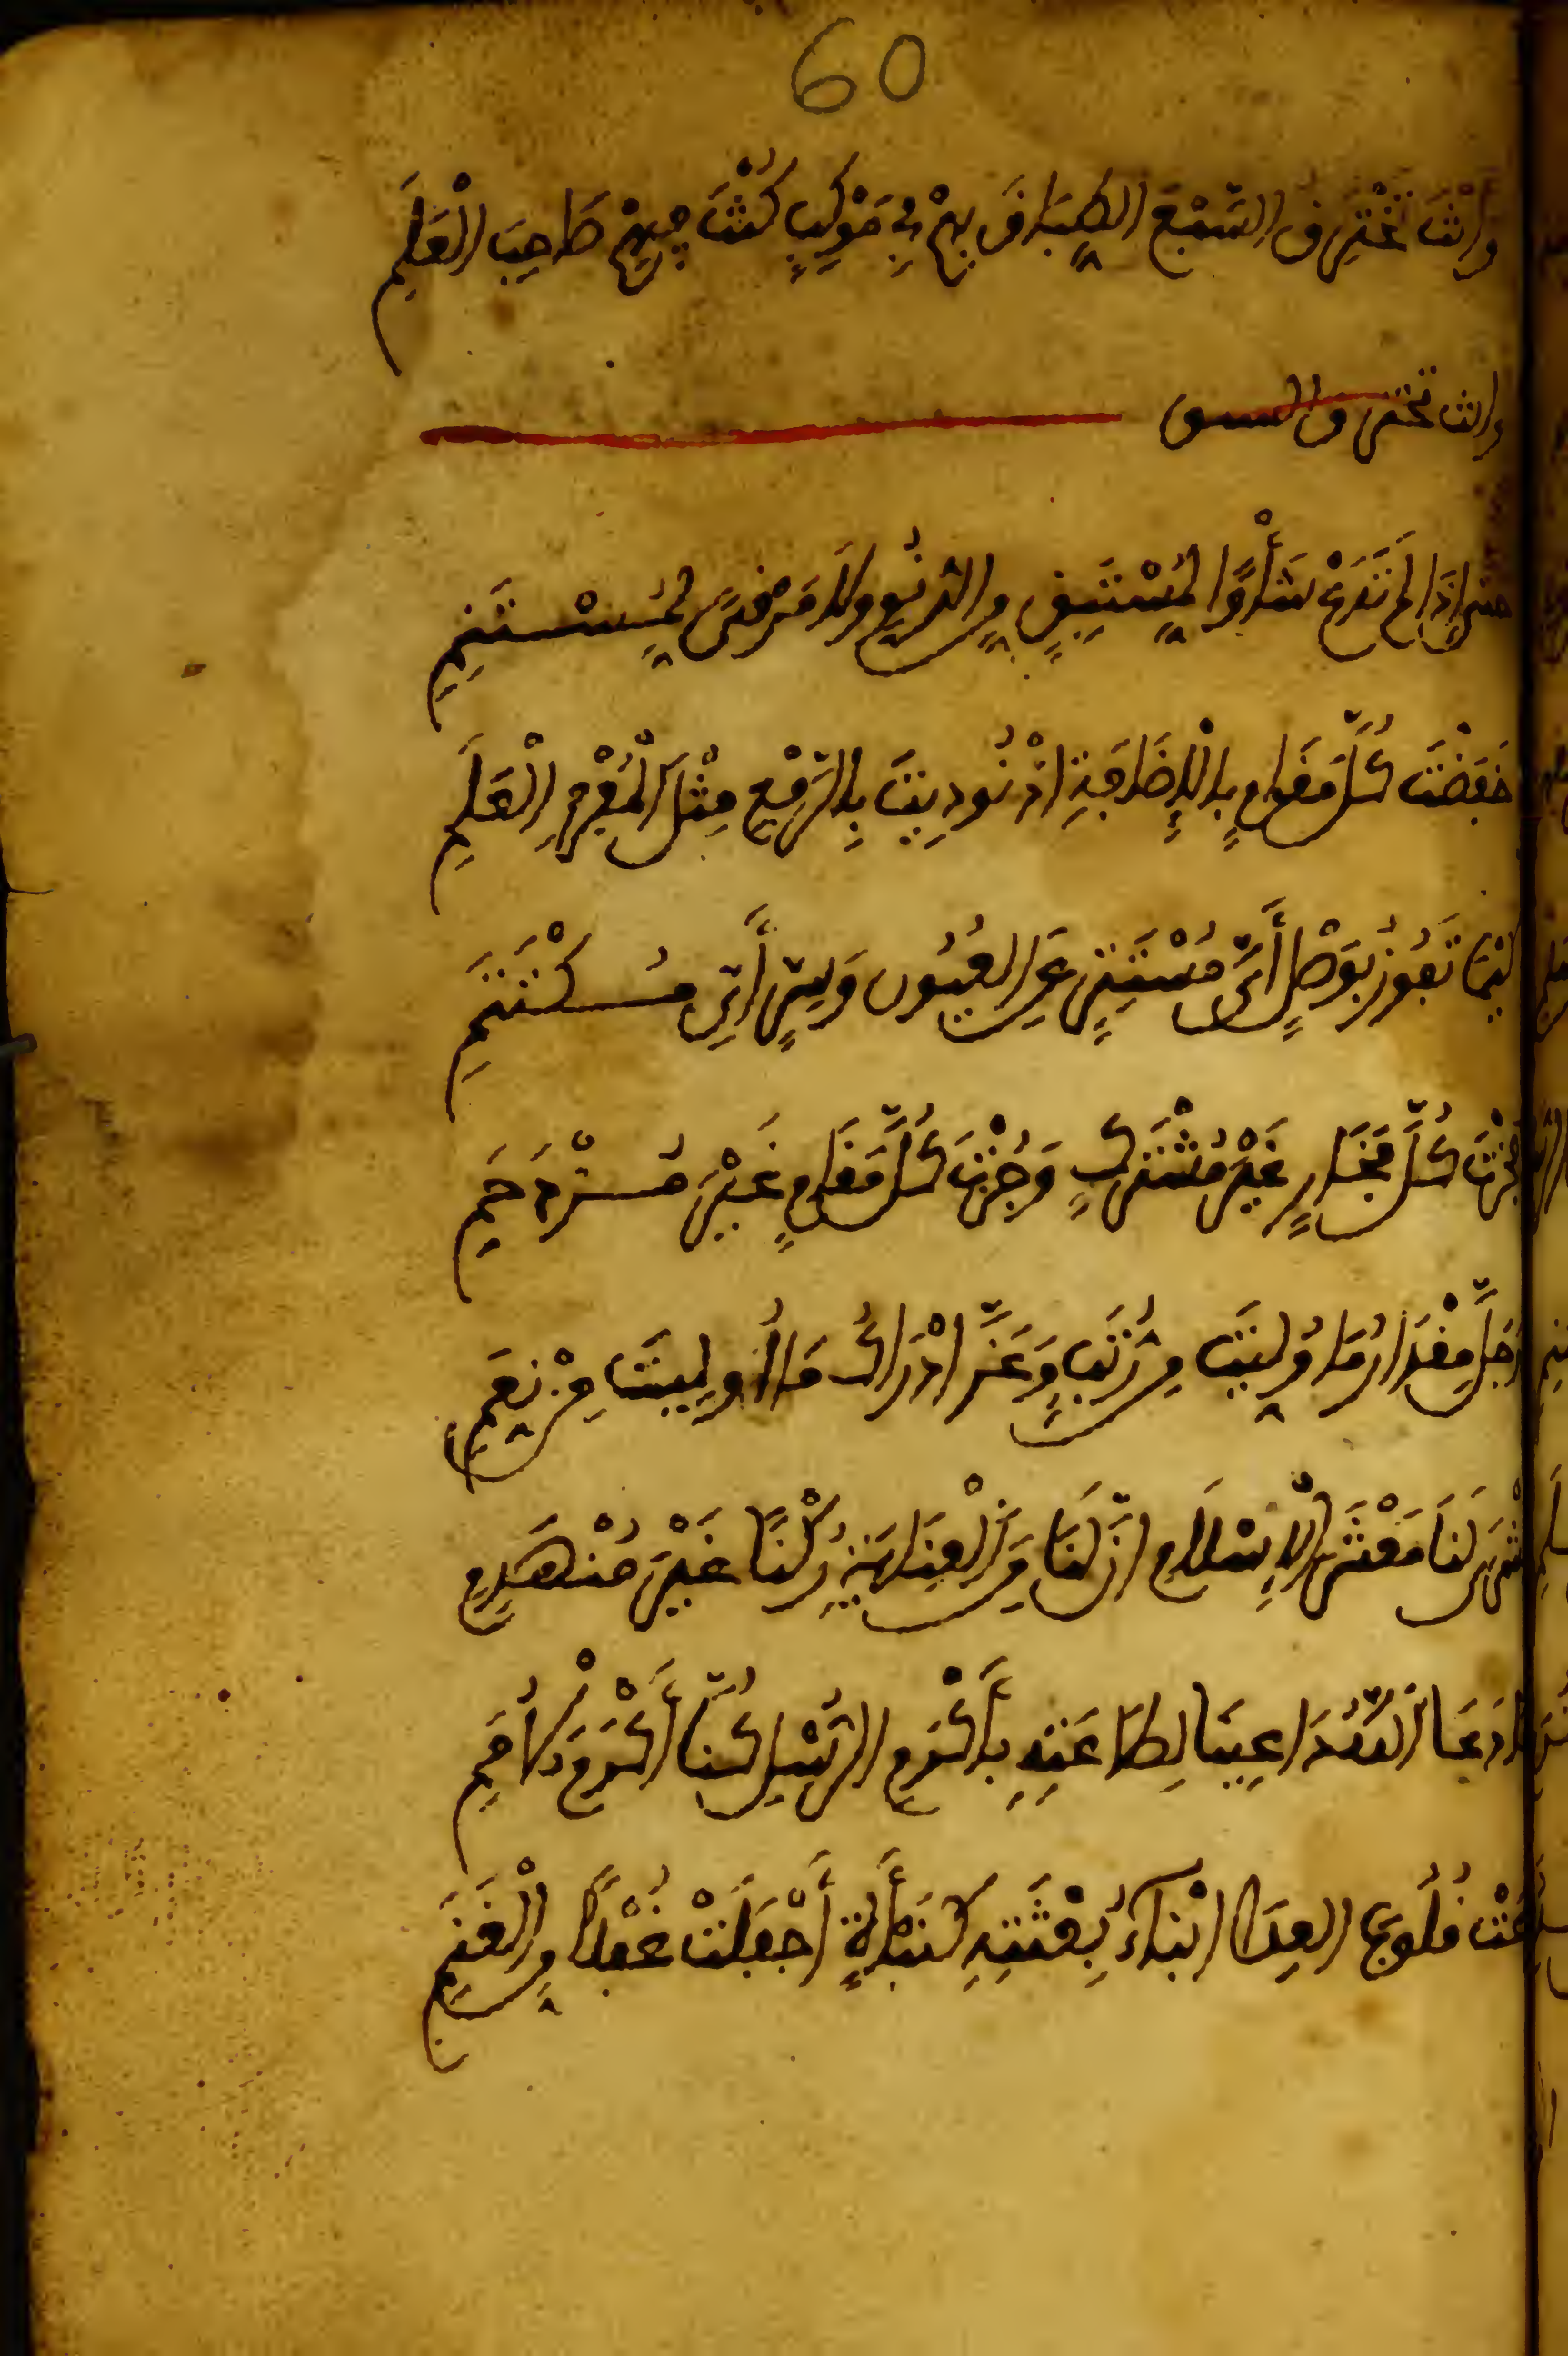 60
وَأَنْتَ تَخْتَرِقُ السَّبْعَ الطِّبَاقَ بِهِمْ فِي مَوْكِبٍ كُنْتَ فِيهِمْ صَاحِبَ الْعَلَمِ
وانت تخترق السبع
حتى إِذَا لَمْ تَدَعْ شَأْوًا لِمُسْتَبِقٍ مِنَ الدُّنُوِّ وَلَا مَرْقًى لِمُسْتَنِمِ
خَفَضْتَ كُلَّ مَقَامٍ بِالْإِضَافَةِ إِذْ نُودِيتَ بِالرَّفْعِ مِثْلَ الْمُفْرَدِ الْعَلَمِ
كَيْمَا تَفُوزَ بِوَصْلٍ أَيِّ مُسْتَتِرٍ عَنِ الْعُيُونِ وَسِرٍّ أَيِّ مُكْتَتَمِ
فَحُزْتَ كُلَّ فَخَارٍ غَيْرَ مُشْتَرَكٍ وَجُزْتَ كُلَّ مَقَامٍ غَيْرَ مُزْدَحَمِ
وَجَلَّ مِقْدَارُ مَا وُلِّيتَ مِنْ رُتَبٍ وَعَزَّ إِدْرَاكُ مَا أُولِيتَ مِنْ نِعَمِ
بُشْرَى لَنَا مَعْشَرَ الْإِسْلَامِ إِنَّ لَنَا مِنَ الْعِنَايَةِ رُكْنًا غَيْرَ مُنْهَدِمِ
لَمَّا دَعَا اللَّهُ دَاعِينَا لِطَاعَتِهِ بِأَكْرَمِ الرُّسْلِ كُنَّا أَكْرَمَ الْأُمَمِ
رَاعَتْ قُلُوبَ الْعِدَا أَنْبَاءُ بِعْثَتِهِ كَنَبْأَةٍ أَجْفَلَتْ غُفْلًا مِنَ الْغَنَمِ